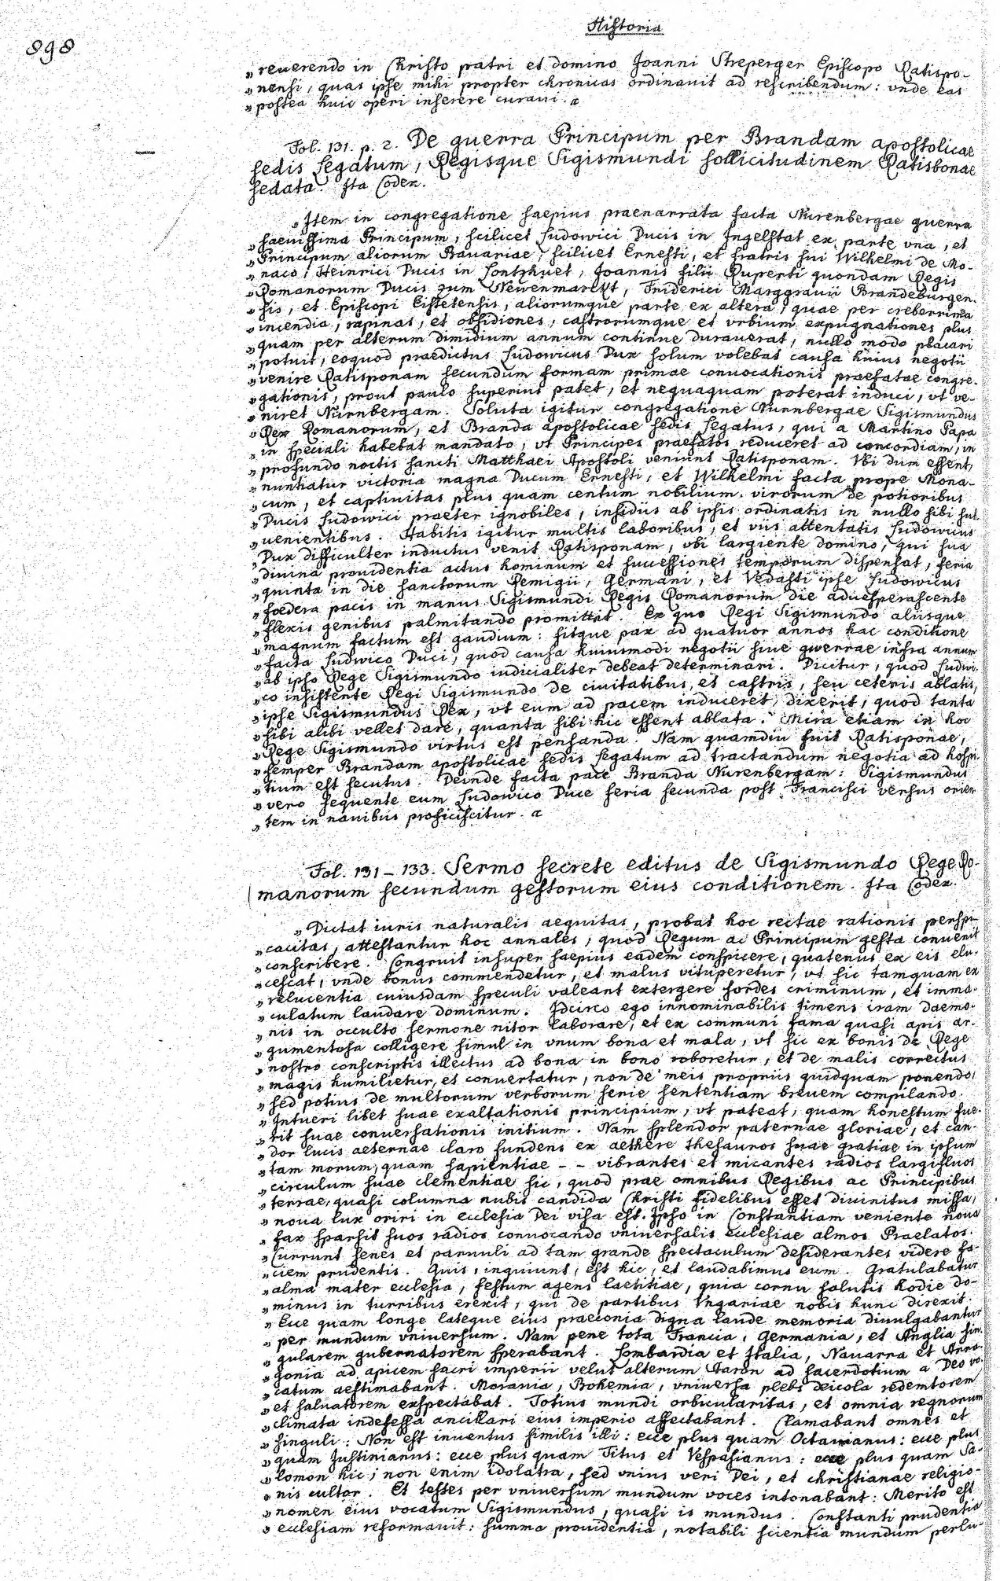 Historia
898
„ reuerendo in Christo patri et domino Joanni Streperger Episcopo Ratispo-
„ nensi, quas ipse mihi propter chronicas ordinauit ad rescribendum: vnde eas
„ postea huic operi inserere curaui. a
Fol. 131. p. 2. De guerra Principum per Brandam apostolicae
sedis Legatum, Regisque Sigismundi sollicitudinem Ratisbonae
sedata. Ita Codex.
„ Item in congregatione saepius praenarrata facta Nurenbergae guerra
„ saeuissima Principum, scilicet Ludowici Ducis in Ingelstat ex parte vna, et
„ Principum aliorum Bauariae, scilicet Ernesti, et fratris sui Wilhelmi de Mo-
„ naco, Heinrici Ducis in Lontzhuet, Joannis filii Ruperti quondam Regis
„ Romanorum Ducis zum Neuenmarckt, Friderici Marggrauii Brandeburgen-
„ sis, et Episcopi Eistetensis, aliorumque parte ex altera, quae per creberrima
„ incendia, rapinas, et obsidiones, castrorumque et vrbium expugnationes plus
„ quam per alterum dimidium annum continue durauerat, nullo modo placari
„ potuit, eoquod praedictus Ludowicus Dux solum volebat causa huius negotii
„ venire Ratisponam secundum formam primae conuocationis praefatae congre-
„ gationis, prout paulo superius patet, et nequaquam poterat induci, vt ve-
„ niret Nurnbergam. Soluta igitur congregatione Nurnbergae Sigismundus
„ Rex Romanorum, et Branda apostolicae sedis Legatus, qui a Martino Papa
„ in speciali habebat mandato, vt Principes praefatos reduceret ad concordiam, in
„ profundo noctis sancti Matthaei Apostoli veniunt Ratisponam. Vbi dum essent,
„ nuntiatur victoria magna Ducum Ernesti, et Wilhelmi facta prope Mona-
„ cum, et captiuitas plus quam centum nobilium virorum de potioribus
„ Ducis Ludowici praeter ignobiles, insidiis ab ipsis ordinatis in nullo sibi sub-
„ uenientibus. Habitis igitur multis laboribus, et viis attentatis Ludowicus
„ Dux difficulter inductus venit Ratisponam, vbi largiente domino, qui sua
„ diuina prouidentia actus hominum et successiones temporum dispensat, feria
„ quinta in die sanctorum Remigii, Germani, et Vedasti ipse Ludowicus
„ foedera pacis in manus Sigismundi Regis Romanorum die aduesperascente
„ flexis genibus palmitando promittit. Ex quo Regi Sigismundo aliisque
„ magnum factum est gaudium: sitque pax ad quatuor annos hac conditione
„ facta Ludwico Duci, quod causa huiusmodi negotii siue gwerrae infra annum
„ ab ipso Rege Sigismundo iudicialiter debeat determinari. Dicitur, quod Ludwi-
„ co insistente Regi Sigismundo de ciuitatibus, et castris, seu ceteris ablatis,
„ ipse Sigismundus Rex, vt eum ad pacem induceret, dixerit, quod tanta
„ sibi alibi vellet dare, quanta sibi hic essent ablata. Mira etiam in hoc
„ Rege Sigismundo virtus est pensanda. Nam quamdiu fuit Ratisponae,
„ semper Brandam apostolicae sedis Legatum ad tractandum negotia ad hospi-
„ tium est secutus. Deinde facta pace Branda Nurenbergam: Sigismundus
„ vero sequente eum Ludowico Duce feria secunda post Francisci versus orien-
„ tem in nauibus proficiscitur. a
Fol. 131 – 133. Sermo secrete editus de Sigismundo Rege Ro-
manorum secundum gestorum eius conditionem. Ita Codex.
„ Dictat iuris naturalis aequitas, probat hoc rectae rationis perspi-
„ cacitas, attestantur hoc annales, quod Regum ac Principum gesta conuenit
„ conscribere. Congruit insuper saepius eadem conspicere, quatenus ex eis elu-
„ cescat, vnde bonus commendetur, et malus vituperetur, vt sic tamquam ex
„ relucentia cuiusdam speculi valeant extergere sordes criminum, et imma-
„ culatum laudare dominum. Idcirco ego innominabilis timens iram daemo-
„ nis in occulto sermone nitor laborare, et ex communi fama quasi apis ar-
„ gumentosa colligere simul in vnum bona et mala, vt sic ex bonis de Rege
„ nostro conscriptis illectus ad bona in bono roboretur, et de malis correctus
„ magis humilietur, et conuertatur, non de meis propriis quidquam ponendo,
„ sed potius de multorum verborum serie sententiam breuem compilando.
„ Intueri libet suae exaltationis principium, vt pateat, quam honestum fue-
„ rit suae conuersationis initium. Nam splendor paternae gloriae, et can-
„ dor lucis aeternae claro fundens ex aethere thesauros suae gratiae in ipsum
„ tam morum, quam sapientiae – – vibrantes et micantes radios largifluos
„ circulum suae clementiae sic, quod prae omnibus Regibus ac Principibus
„ terrae, quasi columna nubis candida Christi fidelibus esset diuinitus missa,
„ noua lux oriri in ecclesia Dei visa est. Ipso in Constantiam veniente noua
„ fax sparsit suos radios conuocando vniuersalis ecclesiae almos Praelatos.
„ Currunt senes et paruuli ad tam grande spectaculum desiderantes videre fa-
„ ciem prudentis. Quis, inquiunt, est hic, et laudabimus eum. Gratulabatur
„ alma mater ecclesia, festum agens laetitiae, quia cornu salutis hodie do-
„ minus in turribus erexit, qui de partibus Vngariae nobis hunc direxit.
„ Ecce quam longe lateque eius praeconia digna laude memoria diuulgabantur
„ per mundum vniuersum. Nam pene tota Francia, Germania, et Anglia sin-
„ gularem gubernatorem sperabant. Lombardia et Italia, Nauarra et Arra-
„ gonia ad apicem sacri imperii velut alterum Aaron ad sacerdotium a Deo vo-
„ catum aestimabant. Morauia, Bohemia, vniuersa plebs deicola redemtorem
„ et saluatorem exspectabat. Totius mundi orbicularitas, et omnia regnorum
„ climata indefessa ancillari eius imperio affectabant. Clamabant omnes et
„ singuli: Non est inuentus similis illi: ecce plus quam Octauianus: ecce plus
„ quam Justinianus: ecce plus quam Titus et Vespasianus: ecce plus quam Sa-
„ lomon hic, non enim idolatra, sed vnius veri Dei, et christianae religio-
„ nis cultor. Et testes per vniuersum mundum voces intonabant: Merito est
„ nomen eius vocatum Sigismundus, quasi is mundus. Constanti prudentia
„ ecclesiam reformauit: summa prouidentia, notabili scientia mundum perlu-